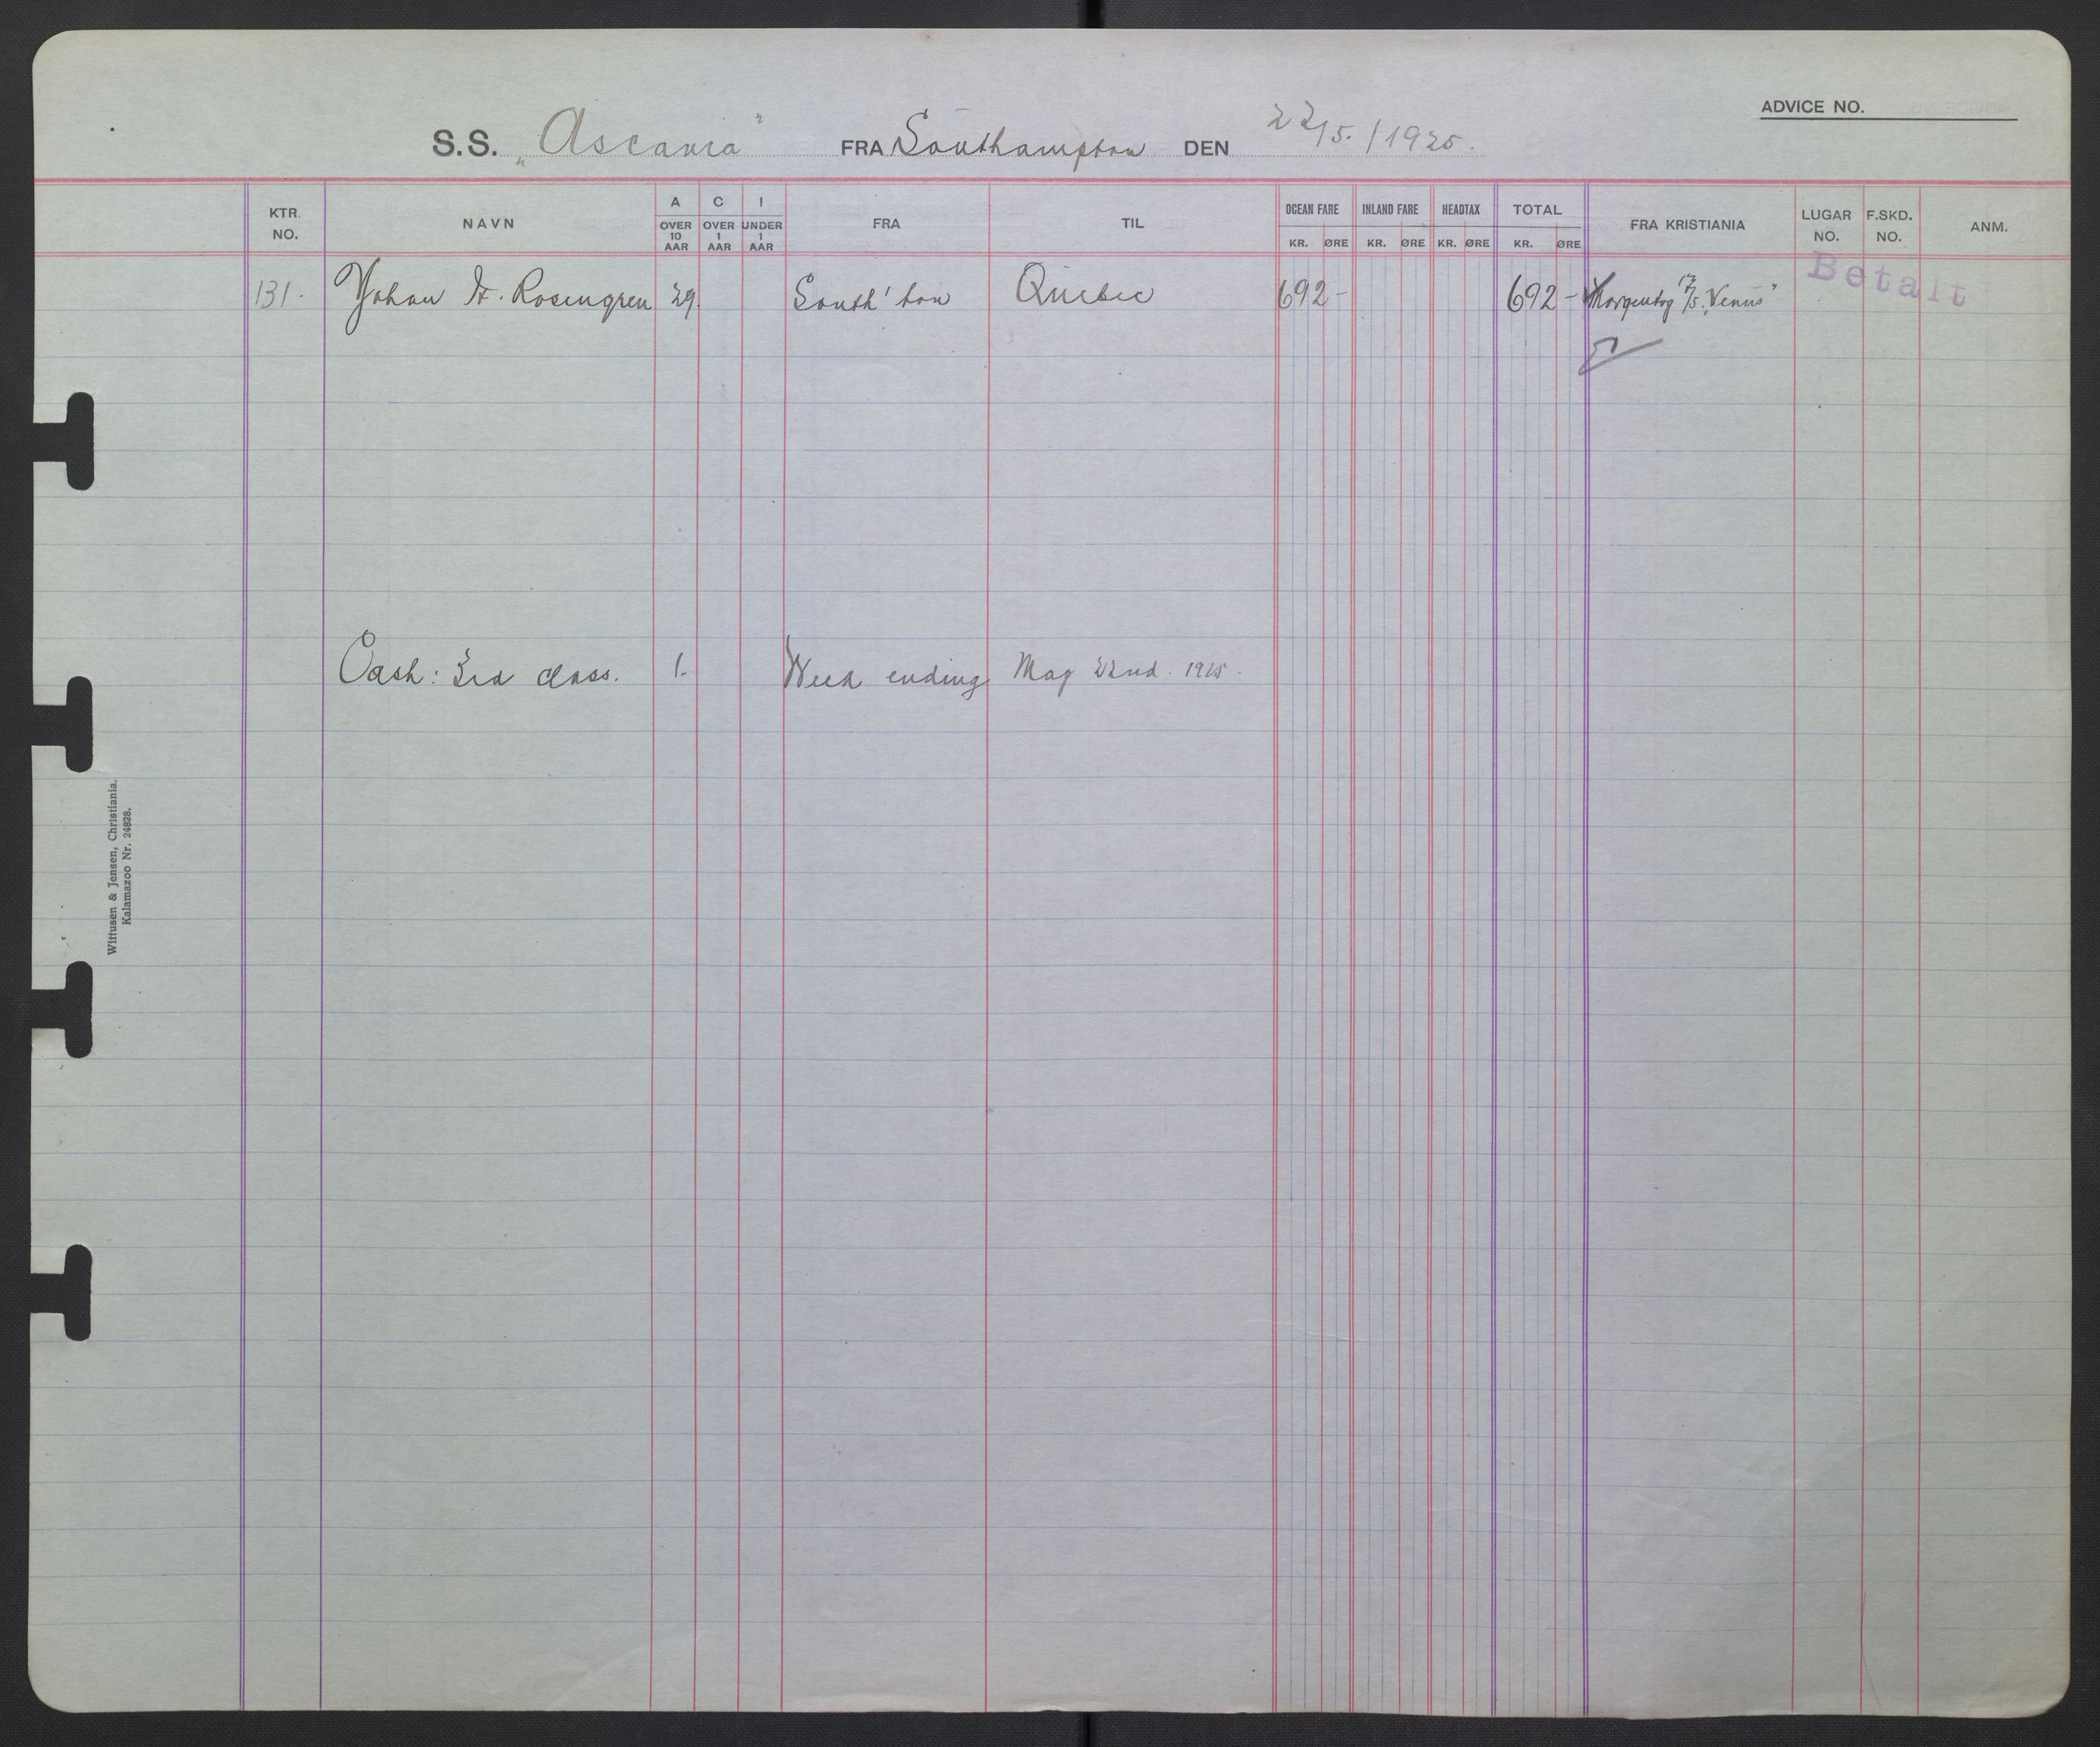 ADVICE NO.
S.S. „Ascania" FRA Southampton DEN 22/5. / 1925.
KTR. NO. NAVN A OVER 10 AAR C OVER 1 AAR I UNDER 1 AAR FRA TIL OCEAN FARE KR. ØRE INLAND FARE KR. ØRE HEADTAX KR. ØRE TOTAL KR. ØRE FRA KRISTIANIA LUGAR NO. F.SKD. NO. ANM.
131. Johan A. Rosengren 29. South'ton Quebec 692- 692- Morgentog „Venus" Betalt
Cash: 3rd class. 1. Week ending May 22nd. 1925.
Wittusen & Jensen, Christiania.
Kalamazoo Nr. 24828.